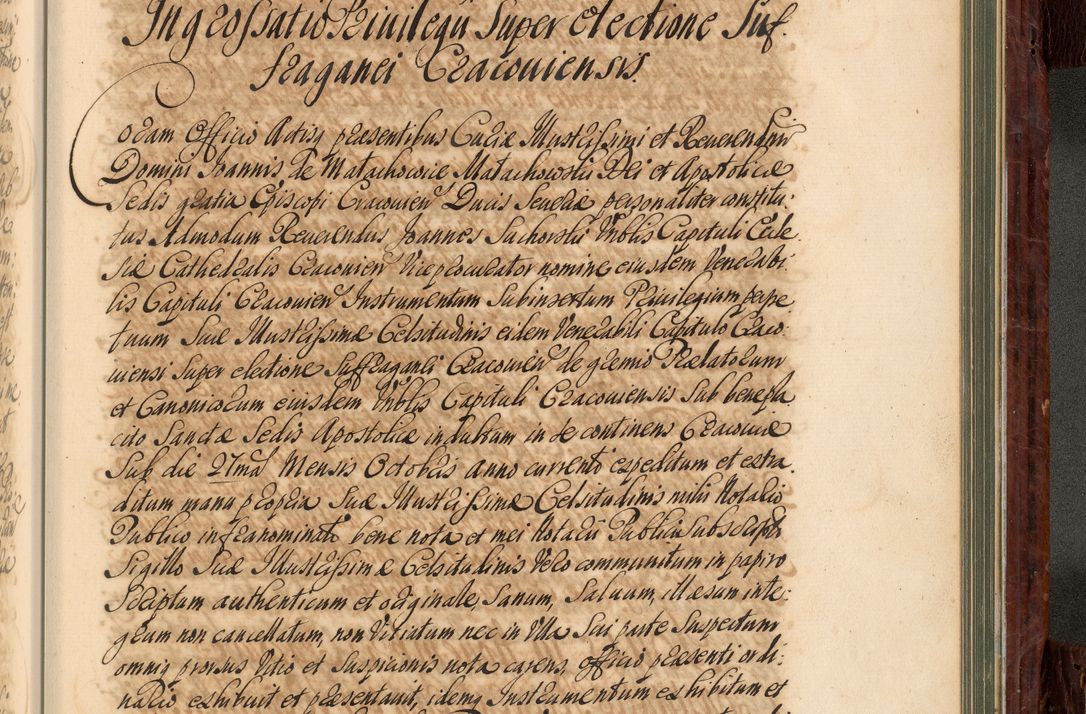 Ingrossatio Privilegii Super electione Suf.
fraganei Cracoviensis.
Coram Officio Actisq præsentibus Curiæ Illustrissimi et Reverendissimi
Domini Joannis de Małachowice Małachowski Dei et Apostolicæ
Sedis gratia Episcopi Cracovien Ducis Severiæ personaliter constitu:
tus Admodum Reverendus Joannes Suchorski Vnblis Capituli Eccle
siæ Cathedralis Cracovien Viceprocurator nomine eiusdem Venerabi.
lis Capituli Cracovien Instrumentum Subinsertum Privilegium perpe
tuum Suæ Illustrissimæ Celsitudinis eidem Venerabili Capitulo Craco:
viensi Super electione Suffraganei Cracovien de gremio Prælatorum
et Canonicorum eiusdem Vnblis Capituli Cracoviensis Sub benepla
cito Sanctæ Sedis Apostolicæ indultum in se continens Cracoviæ
Sub die 27ma Mensis Octobris anno currenti expeditum et extra.
ditum manu propria Suæ Illustrissimæ Celsitudinis mihi Notario
Publico infranominato bene nota et mei Notarii Publici Subscript
Sigillo Suæ Illustrissimæ Celsitudinis Vero communitum in papiro
Scriptum authenticum et originale, Sanum, Salvum, illæsum inte:
grum non cancellatum, non Vitiatum nec in Vlla Sui parte Suspectum
omniq prorsus Vitio et Suspicionis nota carens, officio præsenti ordi:
nario exhibuit et præsentavit, idemq Instrumentum exhibitum et